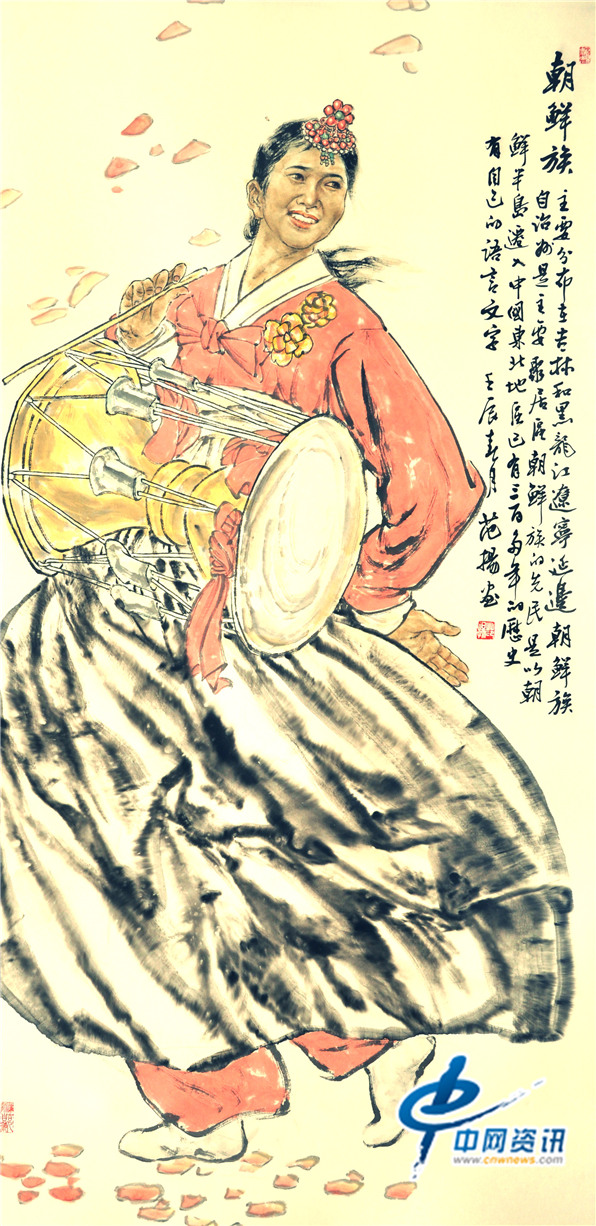 朝鮮族 主要分布在吉林和黑龍江遼寧延邊朝鮮族
自治州是主要聚居區朝鮮族的先民是以朝
鮮半島遷入中國東北地區已有三百多年的歷史
有自己的語言文字 壬辰春月 范揚画
中网资讯
www.cnwnews.com